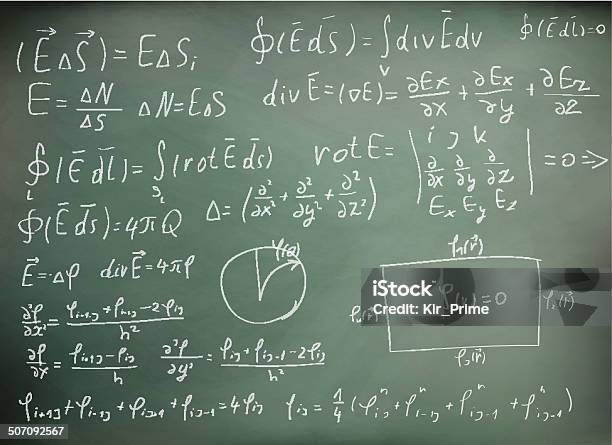 (E⃗ΔS⃗)=EΔSᵢ
∮(Ēd̄S)=∫ᵥdivĒdv
∮(Ēdl̄)=0
E=ΔN/ΔS ΔN=EΔS
divĒ=(∇E)=∂Ex/∂x+∂Ex/∂y+∂Ez/∂z
∮(Ēdl̄)=∫(rotĒds̄)
rotE=|i j k
∂/∂x ∂/∂y ∂/∂z
Ex Ey Ez| =0⇒
Δ=(∂²/∂x²+∂²/∂y²+∂²/∂z²)
∮(Ēds̄)=4πQ
E⃗=-Δφ divE⃗=4πρ
φ₁(r⃗)
=0
φ₂(r⃗)
φ₃(r⃗)
∂²φ/∂x²=(φi+1j+φi-1j-2φij)/h²
∂φ/∂x=(φi+1j-φij)/h
∂²φ/∂y²=(φij+φij-1-2φij)/h²
φi+1j+φi-1j+φij+1+φij-1=4φij
φij=1/4(φⁿi+1j+φⁿi-1j+φⁿij+1+φⁿij-1)
iStock
Credit: Kir_Prime
507092567